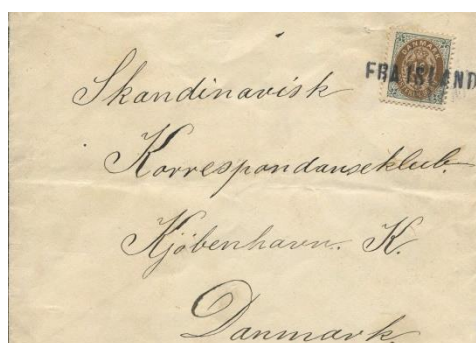 DANMARK
FRA ISLAND
Skandinavisk
Korrespondanseklub.
Kjöbenhavn. K.
Danmark.